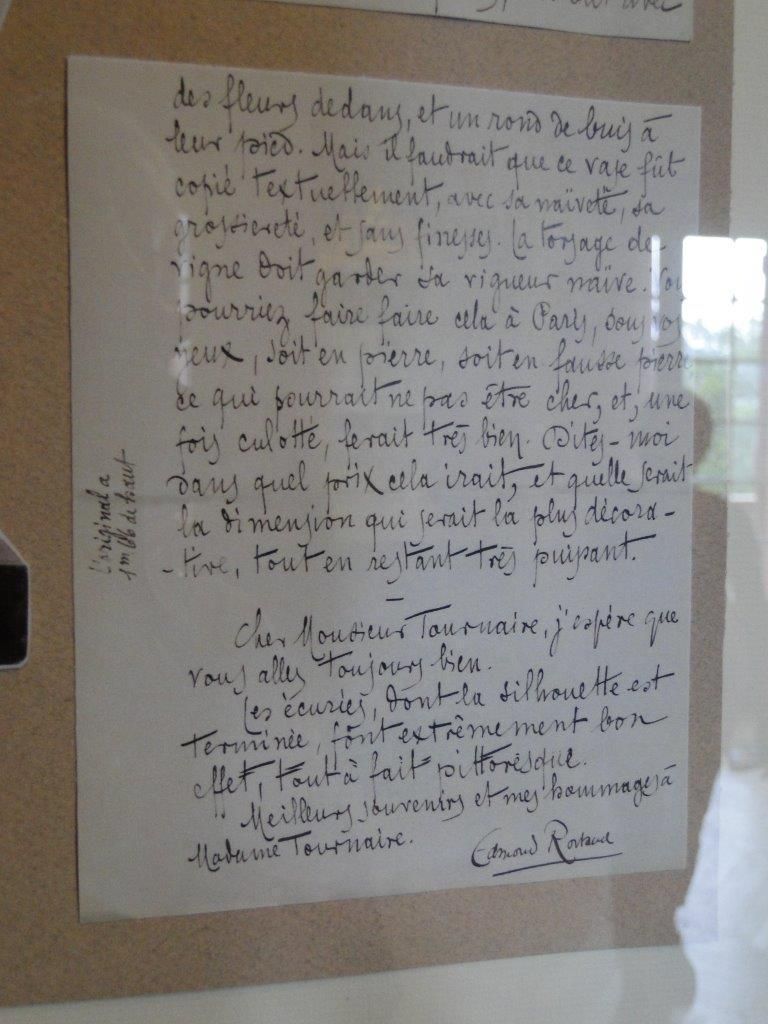 des fleurs dedans, et un rond de buis à
leur pied. Mais il faudrait que ce vase fût
copié textuellement, avec sa naïveté, sa
grossiereté, et sans finesses. La torsade de
vigne doit garder sa vigueur naïve. Vous
pourriez faire faire cela à Paris, sous vos
yeux, soit en pierre, soit en fausse pierre
ce qui pourrait ne pas être cher, et, une
fois culotté, ferait très bien. Dites-moi
dans quel prix cela irait, et quelle serait
la dimension qui serait la plus décora-
-tive, tout en restant très puissant.
L'original a
1m 06 de haut
Cher Monsieur Tournaire, j'espère que
vous allez toujours bien.
Les écuries, dont la silhouette est
terminée, font extrêmement bon
effet, tout à fait pittoresque.
Meilleurs souvenirs et mes hommages à
Madame Tournaire.
Edmond Rostand